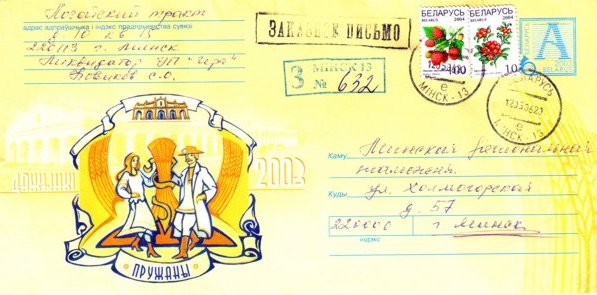 Логойский тракт
адрас адпраўшчыка і індэкс прадпрыемства сувязі
18 кв 13
220113 г. Минск
Ликвидатор УП "Гера"
Новиков С.О.
ЗАКАЗНОЕ ПИСЬМО
З МІНСК 13
№ 632
БЕЛАРУСЬ
BELARUS 2004
100
БЕЛАРУСЬ
BELARUS 2004
10
БЕЛАРУСЬ
А
BELARUS
МІНСК - 13
е
БЕЛАРУСЬ
МІНСК - 13
е
ДАЖЫНКІ
2003
ПРУЖАНЫ
Каму Минская региональная
таможня.
Куды ул. Холмогорская
д. 57
220000 г Минск
індэкс